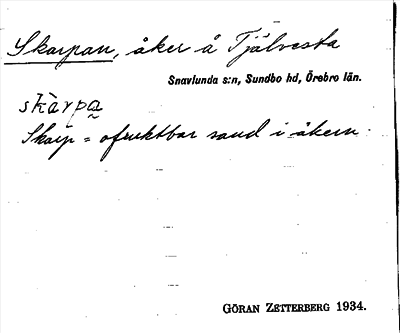 Skarpan, åker å Tjälvesta
Snavlunda s:n, Sundbo hd, Örebro län.
skàrpa̰
Skarp = ofruktbar sand i åkern.
GÖRAN ZETTERBERG 1934.